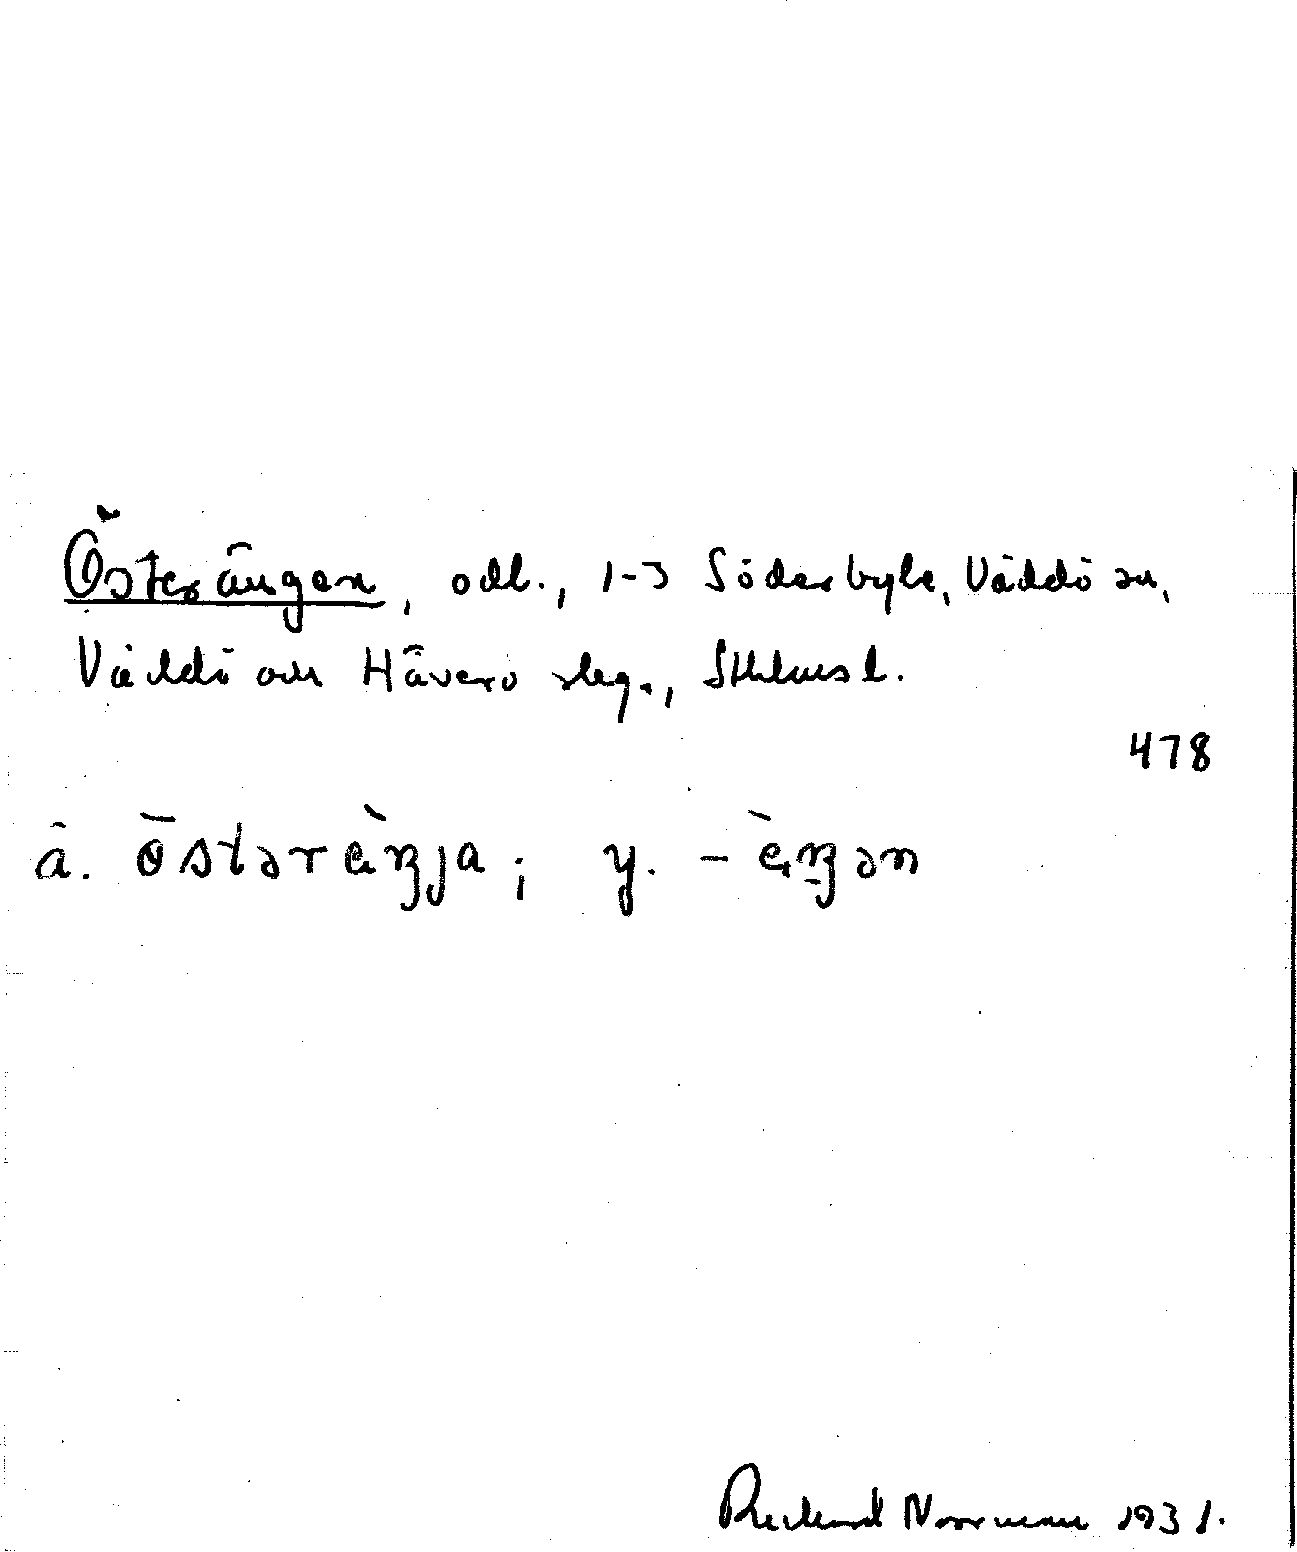 Österängen, odl., 1-3 Söderbyle, Väddö sn,
Väddö och Häverö slag., Sthlms l.
478
ä. östərèŋja; y. -èŋən
Norrman 1931.